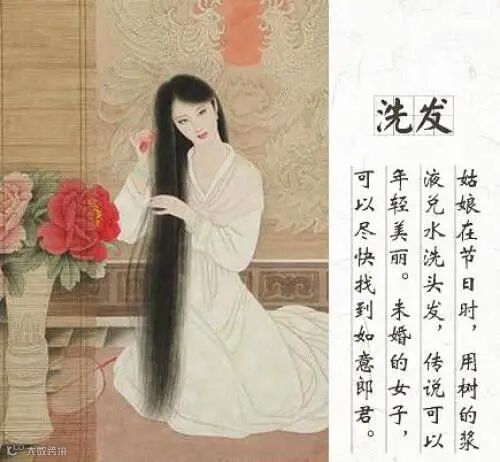 洗发
姑娘在节日时，用树的浆
液兑水洗头发，传说可以
年轻美丽。未婚的女子，
可以尽快找到如意郎君。
大数跨境